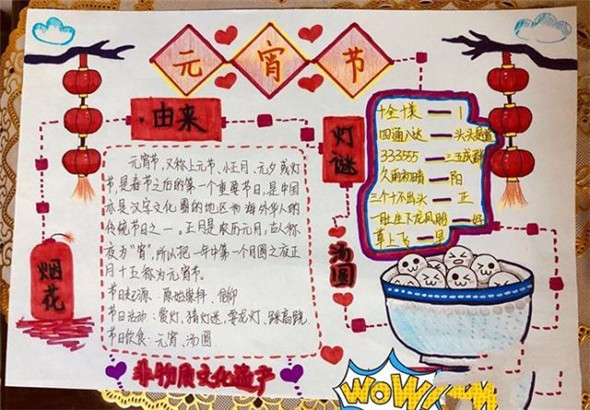 元宵节
由来
元宵节，又称上元节、小正月、元夕或灯
节，是春节之后的第一个重要节日，是中国
亦是汉字文化圈的地区和海外华人的
传统节日之一。正月是农历元月，古人称
夜为"宵"，所以把一年中第一个月圆之夜正
月十五称为元宵节。
节日起源：原始崇拜、信仰
节日活动：赏灯、猜灯谜、耍龙灯、踩高跷
节日饮食：元宵、汤圆
烟花
非物质文化遗产
灯谜
十全十美
四通八达 — 头头是道
333555 — 三五成群
久雨初晴 — 阳
三个十不出头 — 正
草上飞 — 早
汤圆
WOW